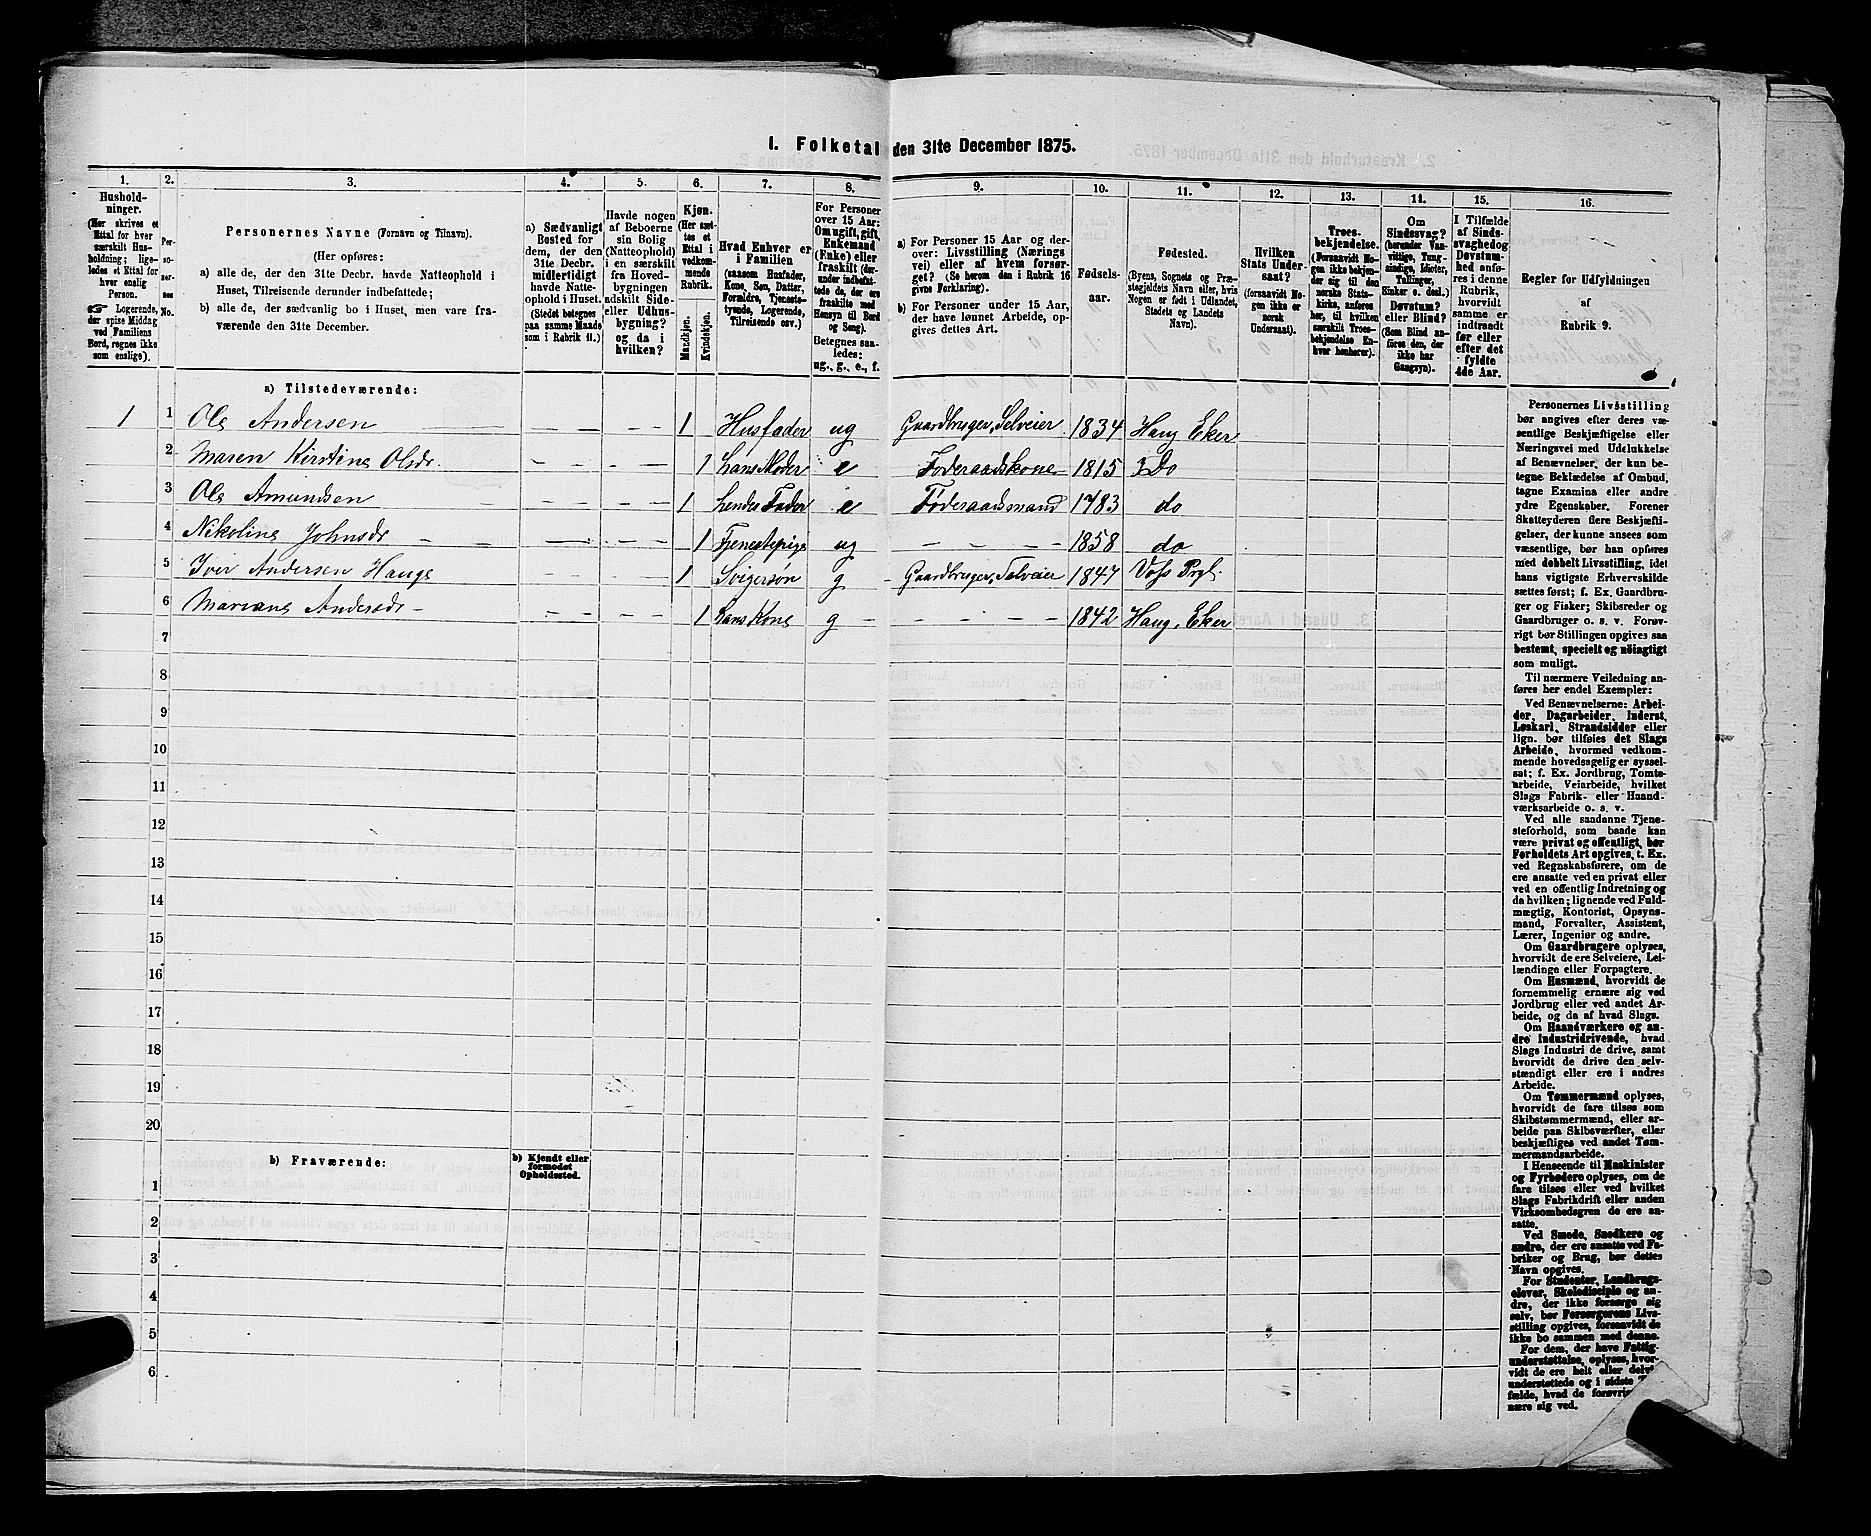 I. Folketal den 31te December 1875.
1. 2. 3. 4. 5. 6. 7. 8. 9. 10. 11. 12. 13. 14. 15. 16.
Hushold-
ninger.
(Her skrives et
Ettal for hver
særskilt Hus-
holdning; lige-
ledes et Ettal for
hver enslig
Person.
☞ Logerende,
der spise Middag
ved Familiens
Bord, regnes ikke
som enslige).
Per-
so-
ner-
nes
No.
Personernes Navne (Fornavn og Tilnavn).
(Her opføres:
a) alle de, der den 31te Decbr. havde Natteophold i
Huset, Tilreisende derunder indbefattede;
b) alle de, der sædvanlig bo i Huset, men vare fra-
værende den 31te December.
a) Sædvanligt
Bosted for
dem, der den
31te Decbr.
midlertidigt
havde Natte-
ophold i Huset.
(Stedet betegnes
paa samme Maade
som i Rubrik 11.)
Havde nogen
af Beboerne
sin Bolig
(Natteophold)
i en særskilt
fra Hoved-
bygningen
adskilt Side-
eller Udhus-
bygning?
og da i
hvilken?
Kjøn.
(Her sæt-
tes et
Ettal i
vedkom-
mende
Rubrik.
Mandkjøn.
Kvindekjøn.
Hvad Enhver er
i Familien
(saasom Husfader,
Kone, Søn, Datter,
Forældre, Tjeneste-
tyende, Logerende,
Tilreisende osv.)
For Personer
over 15 Aar:
Om ugift, gift,
Enkemand
(Enke) eller
fraskilt (der-
under indbefat-
tede de, der ere
fraskilte med
Hensyn til Bord
og Seng).
Betegnes saa-
ledes:
ug., g., e., f.
a) For Personer 15 Aar og der-
over: Livsstilling (Nærings-
vei) eller af hvem forsør-
get? (Se herom den i Rubrik 16
givne Forklaring).
b) For Personer under 15 Aar,
der have lønnet Arbeide, op-
gives dettes Art.
Fødsels-
aar.
Fødested.
(Byens, Sognets og Præ-
stegjeldets Navn eller, hvis
Nogen er født i Udlandet,
Stedets og Landets
Navn).
Hvilken
Stats Under-
saat?
(forsaavidt No-
gen ikke er
norsk
Undersaat).
Troes-
bekjendelse.
(Forsaavidt No-
gen ikke bekjen-
der sig til den
norske Stats-
kirke, anføres
her, til hvilken
særskilt Troes-
bekjendelse En-
hver henhører).
Om
Sindssvag?
(herunder Van-
vittige, Tung-
sindige, Idioter,
Tullinger,
Sinker o. desl.)
Døvstum?
eller Blind?
(Som Blind an-
føres den, der
ikke har
Gangsyn).
I Tilfælde
af Sinds-
svaghed og
Døvstum-
hed anfø-
res i denne
Rubrik,
hvorvidt
samme er
indtraadt
før eller
efter det
fyldte
4de Aar.
Regler for Udfyldningen
af
Rubrik 9.
a) Tilstedeværende:
1 1 Ole Andersen — — — — 1 Husfader ug Gaardbruger, Selveier 1834 Haug Eker
2 Maren Kirstine Olsdr. — — — — 1 hans Moder e Føderaadskone 1815 Do
3 Ole Amundsen — — — — 1 hendes Fader e Føderaadsmand 1783 do
4 Nikoline Johnsdr — — — — 1 Tjenestepige ug — — — 1858 do
5 Iver Andersen Hauge — — — — 1 Svigersøn g Gaardbruger, Selveier 1847 Voss Prgl.
6 Mariane Andersdr — — — — 1 hans Kone g — — — 1842 Haug, Eker
7
8
9
10
11
12
13
14
15
16
17
18
19
20
b) Fraværende:
b) Kjendt eller
formodet
Opholdssted.
1
2
3
4
5
6
Personernes Livsstilling
bør angives efter deres væ-
sentlige Beskjæftigelse eller
Næringsvei med Udelukkelse
af Benævnelser, der kun be-
tegne Beklædelse af Ombud,
tagne Examina eller andre
ydre Egenskaber. Forener
Skatteyderen flere Beskjæfti-
gelser, der kunne ansees som
væsentlige, bør han opføres
med dobbelt Livsstilling, idet
hans vigtigste Erhvervskilde
sættes først; f. Ex. Gaardbru-
ger og Fisker; Skibsreder og
Gaardbruger o. s. v. Forøv-
rigt bør Stillingen opgives saa
bestemt, specielt og nöiagtigt
som muligt.
Til nærmere Veiledning an-
føres her endel Exempler:
Ved Benævnelserne: Arbei-
der, Dagarbeider, Inderst,
Løskarl, Strandsidder eller
lign. bør tilføies det Slags
Arbeide, hvormed vedkom-
mende hovedsagelig er syssel-
sat; f. Ex. Jordbrug, Tomte-
arbeide, Veiarbeide, hvilket
Slags Fabrik- eller Haand-
værksarbeide o. s. v.
Ved alle saadanne Tjene-
steforhold, som baade kan
være privat og offentligt, bør
Forholdets Art opgives, t. Ex.
ved Regnskabsførere, om de
ere ansatte ved en privat eller
ved en offentlig Indretning og
da hvilken; lignende ved Fuld-
mægtig, Kontorist, Opsyns-
mand, Forvalter, Assistent,
Lærer, Ingeniør og andre.
Om Gaardbrugere oplyses,
hvorvidt de ere Selveiere, Lei-
lændinge eller Forpagtere.
Om Husmænd, hvorvidt de
fornemmelig ernære sig ved
Jordbrug eller ved andet Ar-
beide, og da af hvad Slags.
Om Haandværkere og an-
dre Industridrivende, hvad
Slags Industri de drive, samt
hvorvidt de drive den selv-
stændigt eller ere i andres
Arbeide.
Om Tømmermænd oplyses,
hvorvidt de fare tilsøs som
Skibstømmermænd, eller ar-
beide paa Skibsværfter, eller
beskjæftiges ved andet Tøm-
mermandsarbeide.
I Henseende til Maskinister
og Fyrbødere oplyses, om de
fare tilsøs eller ved hvilket
Slags Fabrikdrift eller anden
Virksomhedsgren de ere an-
satte.
Ved Smede, Snedkere og
andre, der ere ansatte ved Fa-
briker og Brug, bør dettes
Navn opgives.
For Studenter, Landbrugs-
elever, Skoledisciple og an-
dre, der ikke forsørge sig
selv, bør Forsørgerens Livs-
stilling opgives, forsaavidt de
ikke bo sammen med denne.
For dem, der have Fattig-
understøttelse, oplyses, hvor-
vidt de ere helt eller delvis
understøttede og i sidste
fælde, hvad de forøvri
nære sig ved.